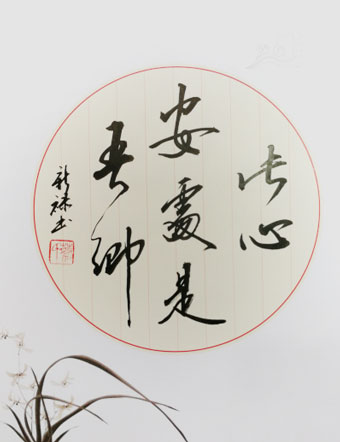 此心
安處是
吾鄉
新禄书